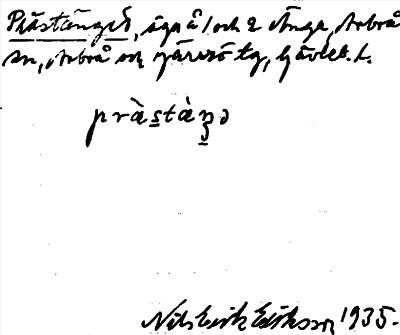 Prästänget, äga å 1 och 2 Änge, Arbrå
sn, Arbrå och Järvsö tg, Gävleb. l.
pràs̲tàn̲ə
Nils Erik Eriksson 1935.